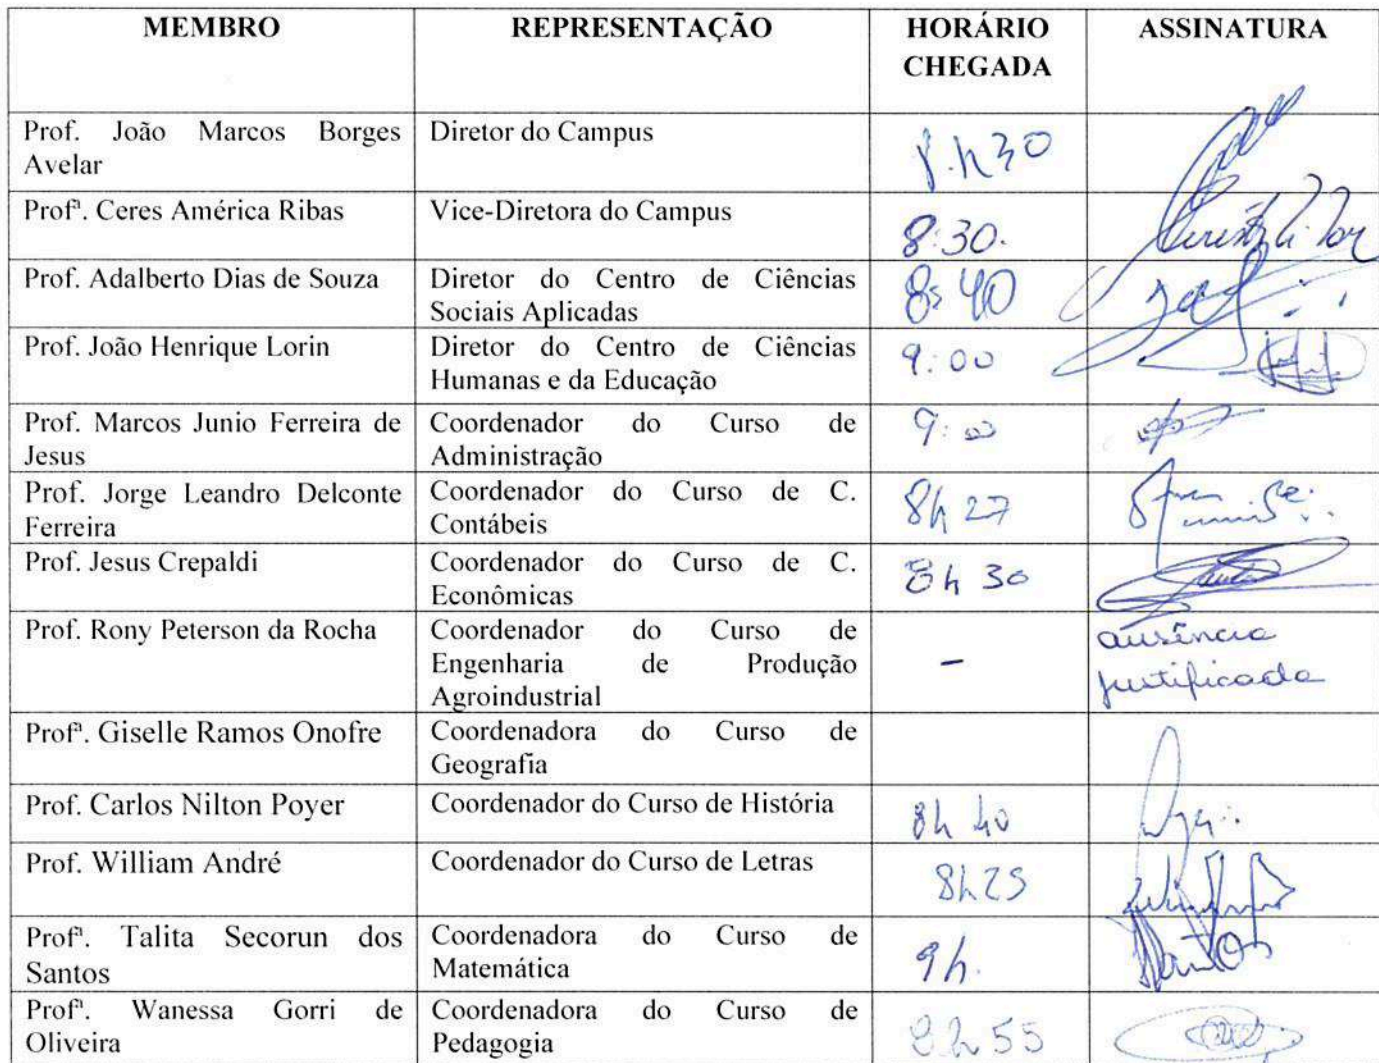 MEMBRO REPRESENTAÇÃO HORÁRIO ASSINATURA
CHEGADA
Prof. João Marcos Borges Diretor do Campus
Avelar
8.h30
Profª. Ceres América Ribas Vice-Diretora do Campus
8:30.
Prof. Adalberto Dias de Souza Diretor do Centro de Ciências
Sociais Aplicadas
8:40
Prof. João Henrique Lorin Diretor do Centro de Ciências
Humanas e da Educação
9:00
Prof. Marcos Junio Ferreira de Coordenador do Curso de
Jesus Administração
9:00
Prof. Jorge Leandro Delconte Coordenador do Curso de C.
Ferreira Contábeis
8h 27
Prof. Jesus Crepaldi Coordenador do Curso de C.
Econômicas
8h 30
Prof. Rony Peterson da Rocha Coordenador do Curso de
Engenharia de Produção
Agroindustrial
–
ausência
justificada
Profª. Giselle Ramos Onofre Coordenadora do Curso de
Geografia
Prof. Carlos Nilton Poyer Coordenador do Curso de História
8h 40
Prof. William André Coordenador do Curso de Letras
8h25
Profª. Talita Secorun dos Coordenadora do Curso de
Santos Matemática
9h.
Santos
Profª. Wanessa Gorri de Coordenadora do Curso de
Oliveira Pedagogia
8h55